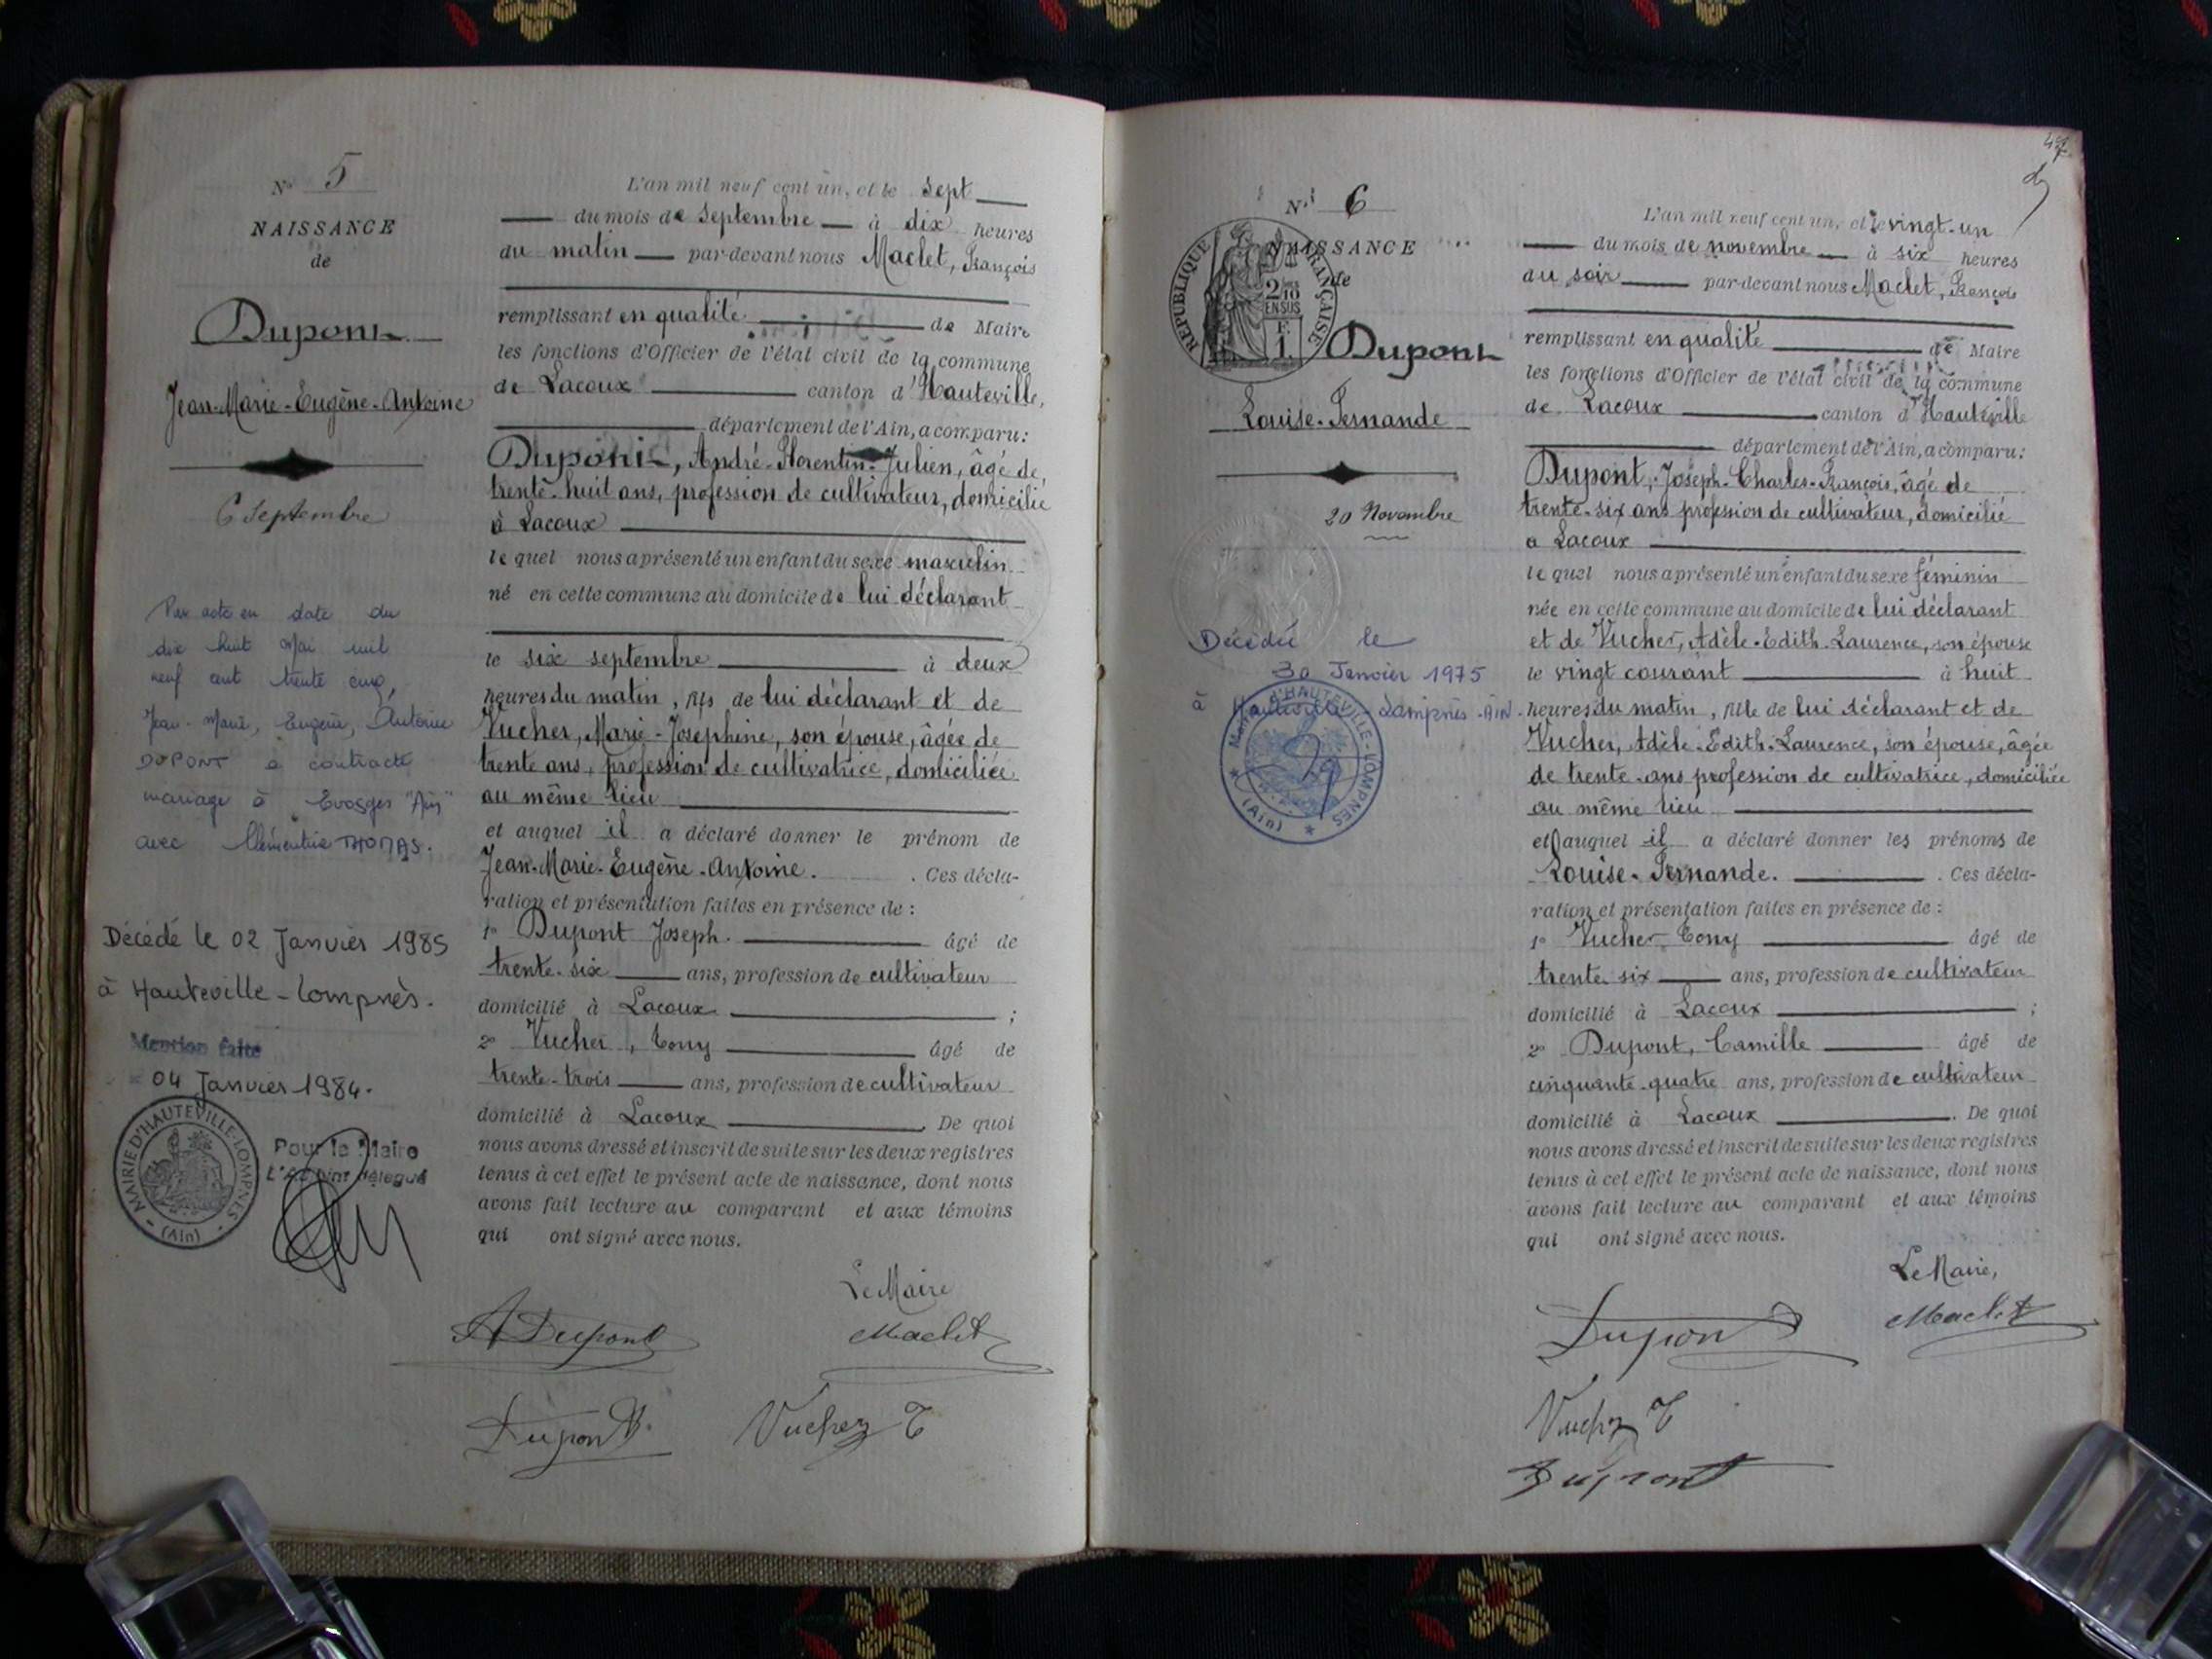 N° 5
NAISSANCE
de
Dupont
Jean-Marie-Eugène-Antoine
6 Septembre
Par acte en date du
dix huit Mai mil
neuf cent trente cinq,
Jean-Marie, Eugène, Antoine
DUPONT a contracté
mariage à Evosges "Ain"
avec Clémentine THOMAS.
Décédé le 02 Janvier 1985
à Hauteville-Lompnès.
Mention faite
04 Janvier 1984.
MAIRIE D'HAUTEVILLE-LOMPNES
(Ain)
Pour le Maire
L'Adjoint délégué
L'an mil neuf cent un, et le sept
du mois de Septembre à dix heures
du matin par-devant nous Maclet, François
remplissant en qualité de Maire
les fonctions d'Officier de l'état civil de la commune
de Lacoux canton d'Hauteville,
département de l'Ain, a comparu:
Dupont, André-Florentin-Julien, âgé de
trente-huit ans, profession de cultivateur, domicilié
à Lacoux
le quel nous a présenté un enfant du sexe masculin
né en cette commune au domicile de lui déclarant
le six septembre à deux
heures du matin, fils de lui déclarant et de
Vucher, Marie-Joséphine, son épouse, âgée de
trente ans, profession de cultivatrice, domiciliée
au même lieu
et auquel il a déclaré donner le prénom de
Jean-Marie-Eugène-Antoine. Ces décla-
ration et présentation faites en présence de :
1° Dupont Joseph. âgé de
trente-six ans, profession de cultivateur
domicilié à Lacoux ;
2° Vucher, Tony âgé de
trente-trois ans, profession de cultivateur
domicilié à Lacoux. De quoi
nous avons dressé et inscrit de suite sur les deux registres
tenus à cet effet le présent acte de naissance, dont nous
avons fait lecture au comparant et aux témoins
qui ont signé avec nous.
Le Maire
A Dupont Maclet
Dupont Vucher T
47
N° 6
NAISSANCE
de
REPUBLIQUE FRANÇAISE
2/10 EN SUS
1 F.
Dupont
Louise-Fernande
20 Novembre
Décédée le
30 Janvier 1975
à Hauteville-Lompnès-AIN.
MAIRIE d'HAUTEVILLE-LOMPNES
(Ain)
L'an mil neuf cent un, et le vingt-un
du mois de novembre à six heures
du soir par-devant nous Maclet, François
remplissant en qualité de Maire
les fonctions d'Officier de l'état civil de la commune
de Lacoux canton d'Hauteville
département de l'Ain, a comparu:
Dupont, Joseph-Charles-François, âgé de
trente-six ans profession de cultivateur, domicilié
à Lacoux
le quel nous a présenté un enfant du sexe féminin
née en cette commune au domicile de lui déclarant
et de Vucher, Adèle-Edith-Laurence, son épouse
le vingt courant à huit
heures du matin, fille de lui déclarant et de
Vucher, Adèle-Edith-Laurence, son épouse, âgée
de trente-ans profession de cultivatrice, domiciliée
au même lieu
et auquel il a déclaré donner les prénoms de
Louise-Fernande. Ces décla-
ration et présentation faites en présence de :
1° Vucher Tony âgé de
trente six ans, profession de cultivateur
domicilié à Lacoux ;
2° Dupont, Camille âgé de
cinquante-quatre ans, profession de cultivateur
domicilié à Lacoux. De quoi
nous avons dressé et inscrit de suite sur les deux registres
tenus à cet effet le présent acte de naissance, dont nous
avons fait lecture au comparant et aux témoins
qui ont signé avec nous.
Le Maire,
Dupont Maclet
Vucher T
Dupont